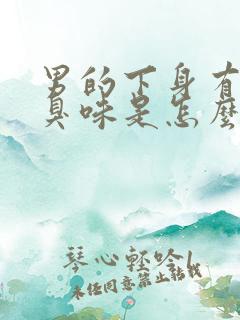 男的下身有
臭味是怎麼
琴心輕吟
未经同意禁止转载